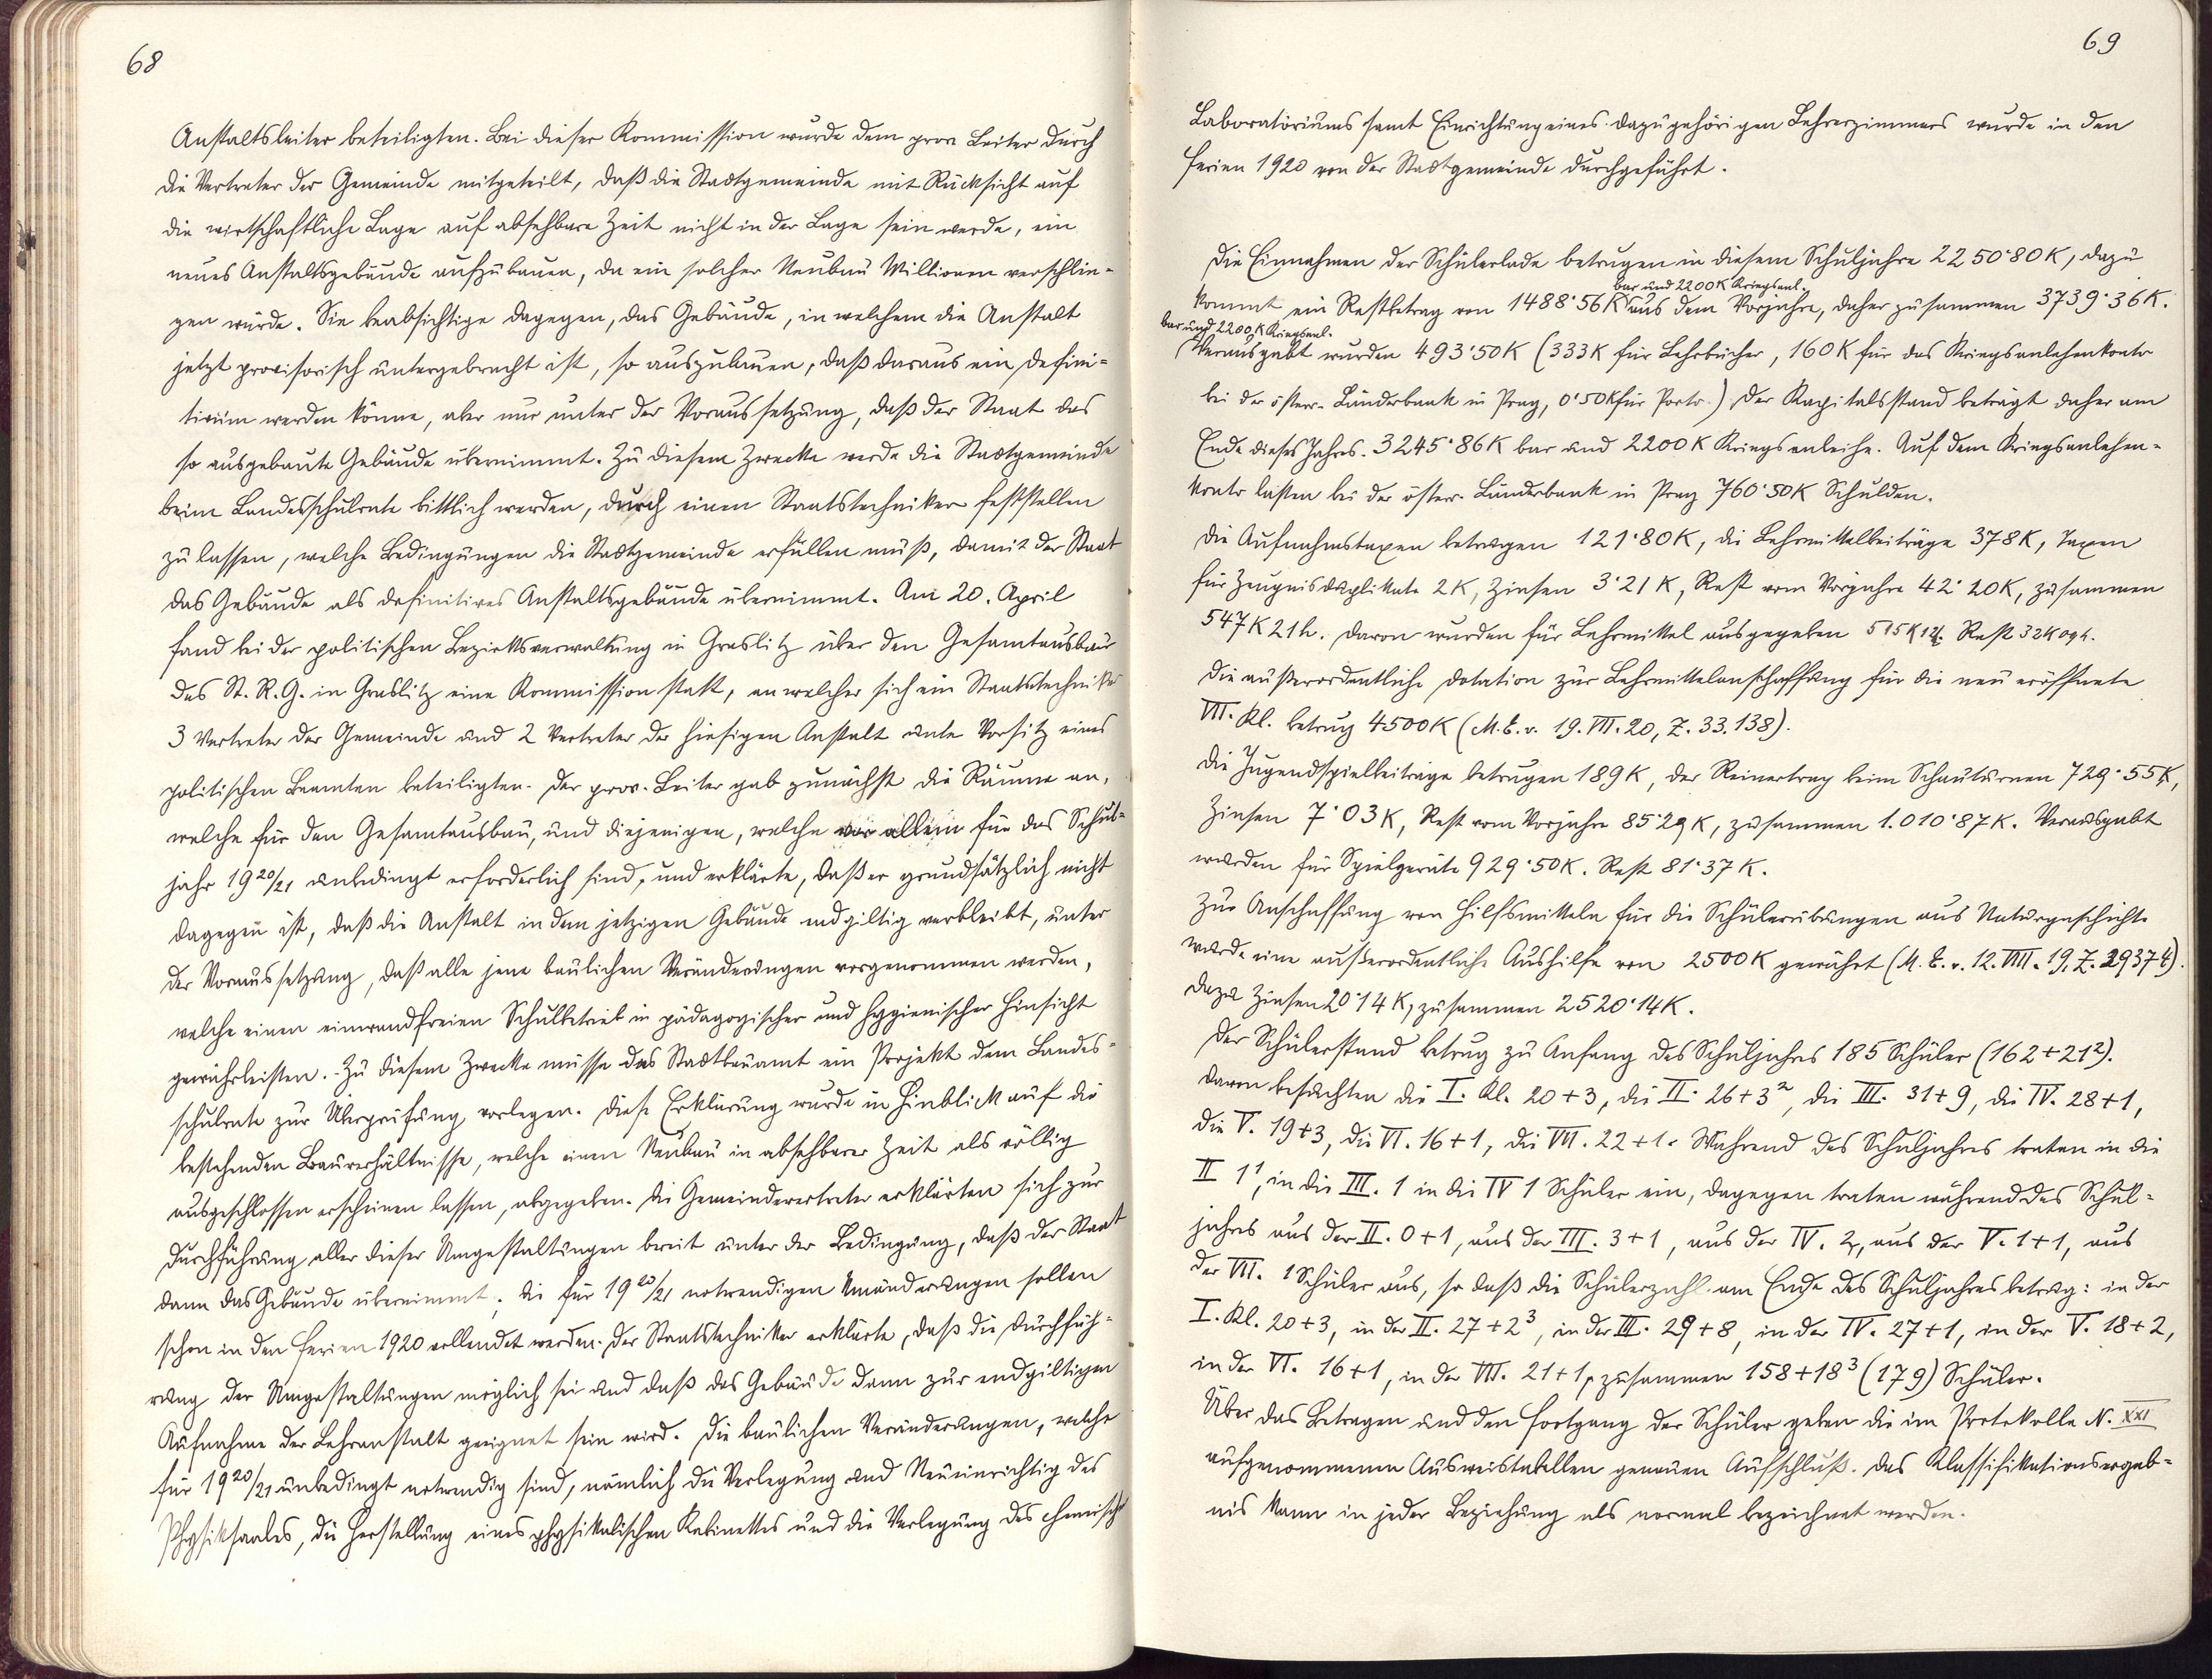 68
Anstaltsleiter beteiligten. Bei dieser Kommission wurde dem prov. Leiter durch
die Vertreter der Gemeinde mitgeteilt, daß die Stadtgemeinde mit Rücksicht auf
die wirtschaftliche Lage auf absehbare Zeit nicht in der Lage sein werde, ein
neues Anstaltsgebäude aufzubauen, da ein solcher Neubau Millionen verschlin-
gen würde. Sie beabsichtige dagegen, das Gebäude, in welchem die Anstalt
jetzt provisorisch untergebracht ist, so auszubauen, daß daraus ein Defini-
tivum werden könne, aber nur unter der Voraussetzung, daß der Staat das
so ausgebaute Gebäude übernimmt. Zu diesem Zwecke werde die Stadtgemeinde
beim Landesschulrate bittlich werden, durch einen Staatstechniker feststellen
zu lassen, welche Bedingungen die Stadtgemeinde erfüllen muß, damit der Staat
das Gebäude als definitives Anstaltsgebäude übernimmt. Am 20. April
fand bei der politischen Bezirksverwaltung in Graslitz über den Gesamtausbau
des St. R. G. in Graslitz eine Kommission statt, an welcher sich ein Staatstechniker
3 Vertreter der Gemeinde und 2 Vertreter der hiesigen Anstalt unter Vorsitz eines
politischen Beamten beteiligten. Der prov. Leiter gab zunächst die Räume an,
welche für den Gesamtausbau, und diejenigen, welche vor allem für das Schul-
jahr 1920/21 unbedingt erforderlich sind, und erklärte, daß er grundsätzlich nicht
dagegen ist, daß die Anstalt in dem jetzigen Gebäude endgiltig verbleibt, unter
der Voraussetzung, daß alle jene baulichen Veränderungen vorgenommen werden,
welche einen einwandfreien Schulbetrieb in pädagogischer und hygienischer Hinsicht
gewährleisten. Zu diesem Zwecke müsse das Stadtbauamt ein Projekt dem Landes-
schulrate zur Überprüfung vorlegen. Diese Erklärung wurde in Hinblick auf die
bestehenden Bauverhältnisse, welche einen Neubau in absehbarer Zeit als völlig
ausgeschlossen erscheinen lassen, abgegeben. Die Gemeindevertreter erklärten sich zur
Durchführung aller dieser Umgestaltungen bereit unter der Bedingung, daß der Staat
dann das Gebäude übernimmt; die für 1920/21 notwendigen Umänderungen sollen
schon in den Ferien 1920 vollendet werden. Der Staatstechniker erklärte, daß die Durchfüh-
rung der Umgestaltungen möglich sei und daß das Gebäude dann zur endgiltigen
Aufnahme der Lehranstalt geeignet sein wird. Die baulichen Veränderungen, welche
für 1920/21 unbedingt notwendig sind, nämlich die Verlegung und Neueinrichtig des
Physiksaales, die Herstellung eines physikalischen Kabinettes und die Verlegung des chemisch
69
Laboratoriums samt Einrichtung eines dazugehörigen Lehrerzimmers wurde in den
Ferien 1920 von der Stadtgemeinde durchgeführt.
Die Einnahmen der Schülerlade betrugen in diesem Schuljahre 2250·80 K, dazu
bar und 2200 K Kriegsanl.
kommt ein Restbetrag von 1488·56 K aus dem Vorjahre, daher zusammen 3739·36 K.
bar und 2200 K Kriegsanl.
Verausgabt wurden 493·50 K (333 K für Lehrbücher, 160 K für das Kriegsanlehenkonto
bei der österr. Länderbank in Prag, 0·50 K für Porto.) Der Kapitalsstand beträgt daher am
Ende dieses Jahres. 3245·86 K bar und 2200 K Kriegsanleihe. Auf dem Kriegsanlehen-
konto lasten bei der österr. Länderbank in Prag 760·50 K Schulden.
Die Aufnahmstaxen betrugen 121·80 K, die Lehrmittelbeiträge 378 K, Taxen
für Zeugnisduplikate 2 K, Zinsen 3·21 K, Rest vom Vorjahre 42·20 K, zusammen
547 K 21 h. Davon wurden für Lehrmittel ausgegeben 515 K 12 h. Rest 32 K 09 h.
Die außerordentliche Dotation zur Lehrmittelanschaffung für die neu eröffnete
VII. Kl. betrug 4500 K (M. E. v. 19. VII. 20, Z. 33.138).
Die Jugendspielbeiträge betrugen 189 K, der Reinertrag beim Schauturnen 729·55 K,
Zinsen 7·03 K, Rest vom Vorjahre 85·29 K, zusammen 1.010·87 K. Verausgabt
wurden für Spielgeräte 929·50 K. Rest 81·37 K.
Zur Anschaffung von Hilfsmitteln für die Schülerübungen aus Naturgeschichte
wurde eine außerordentliche Aushilfe von 2500 K gewährt (M. E. v. 12. VIII. 19, Z. 29374).
Dazu Zinsen 20·14 K, zusammen 2520·14 K.
Der Schülerstand betrug zu Anfang des Schuljahres 185 Schüler (162 + 21²).
Davon besuchten die I. Kl. 20 + 3, die II. 26 + 3², die III. 31 + 9, die IV. 28 + 1,
die V. 19 + 3, die VI. 16 + 1, die VII. 22 + 1. Während des Schuljahres traten in die
II 1¹, in die III. 1 in die IV 1 Schüler ein, dagegen traten während des Schul-
jahres aus der II. 0 + 1, aus der III. 3 + 1, aus der IV. 2, aus der V. 1 + 1, aus
der VII. 1 Schüler aus, so daß die Schülerzahl am Ende des Schuljahres betrug: in der
I. Kl. 20 + 3, in der II. 27 + 2³, in der III. 29 + 8, in der IV. 27 + 1, in der V. 18 + 2,
in der VI. 16 + 1, in der VII. 21 + 1, zusammen 158 + 18³ (179) Schüler.
Über das Betragen und den Fortgang der Schüler geben die im Protokolle N. XXI
aufgenommenen Ausweistabellen genauen Aufschluß. Das Klassifikationsergeb-
nis kann in jeder Beziehung als normal bezeichnet werden.